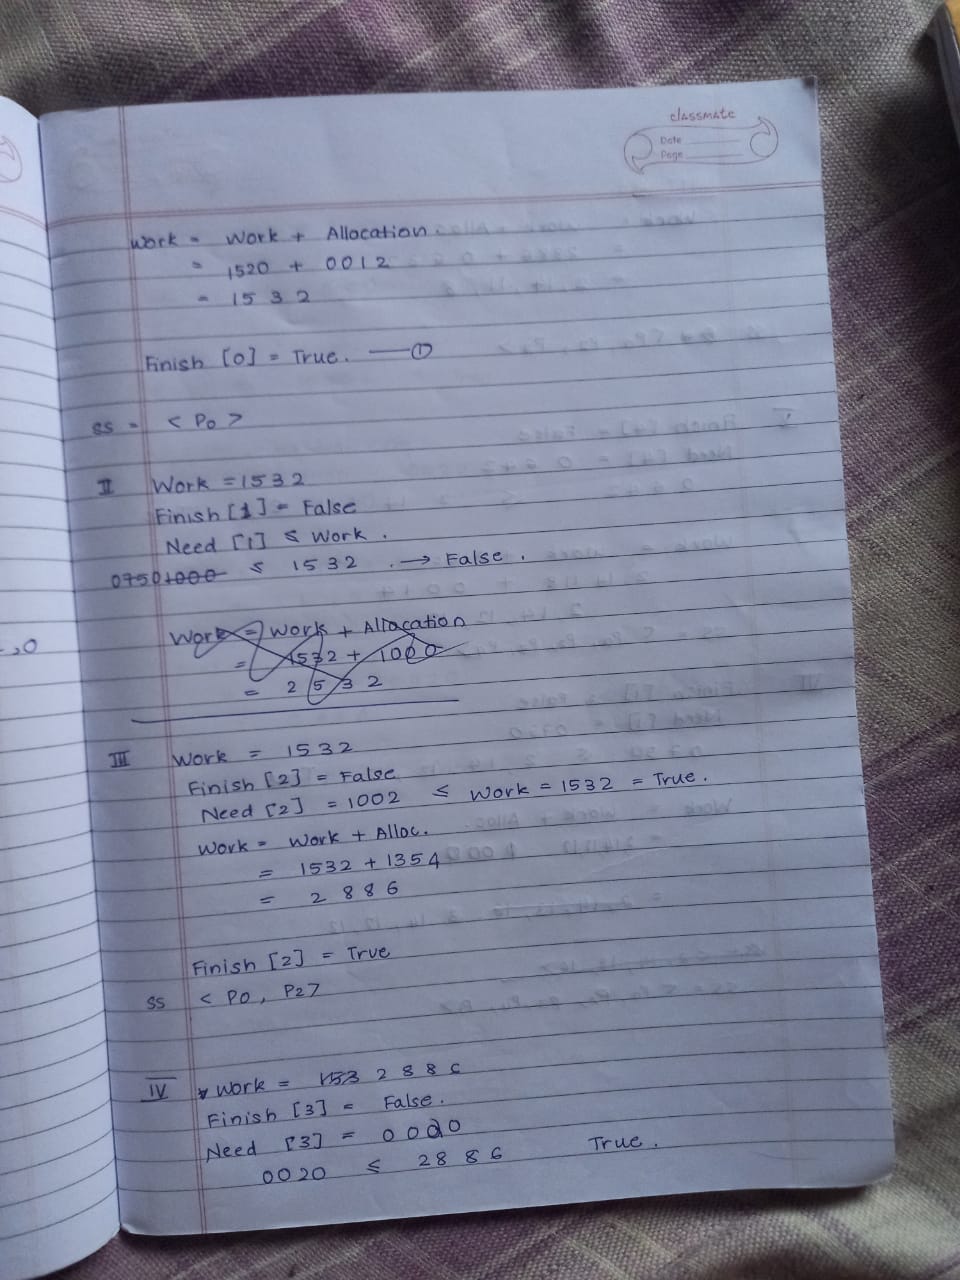 classmate
Date
Page
Work = Work + Allocation
= 1520 + 0012
= 1532
Finish [0] = True. — ①
SS = < P0 >
II Work = 1532
Finish [1] = False
Need [1] ≤ Work.
0750 1000 ≤ 1532 . → False.
Work = Work + Allocation
= 1532 + 1000
= 2532
III Work = 1532
Finish [2] = False
Need [2] = 1002 ≤ Work = 1532 = True.
Work = Work + Alloc.
= 1532 + 1354
= 2886
Finish [2] = True
SS < P0, P2>
IV Work = 153 2886
Finish [3] = False.
Need [3] = 0020
0020 ≤ 2886 True.